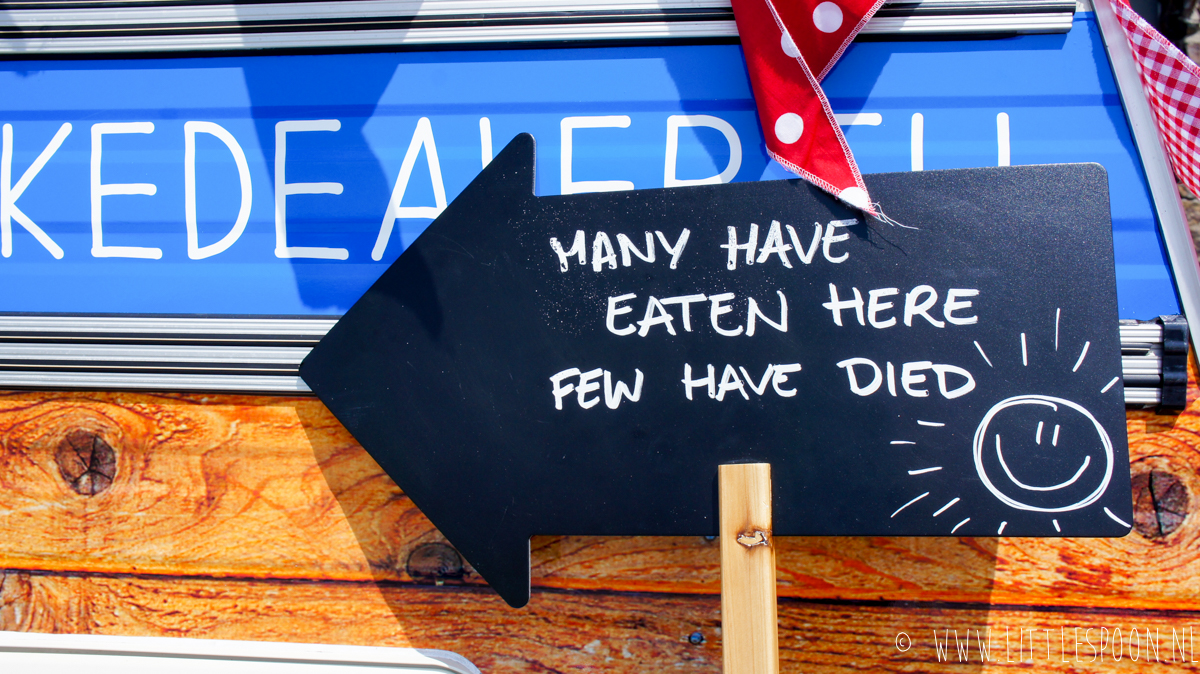 KEDEALER
MANY HAVE
EATEN HERE
FEW HAVE DIED
© WWW.LITTLESPOON.NL